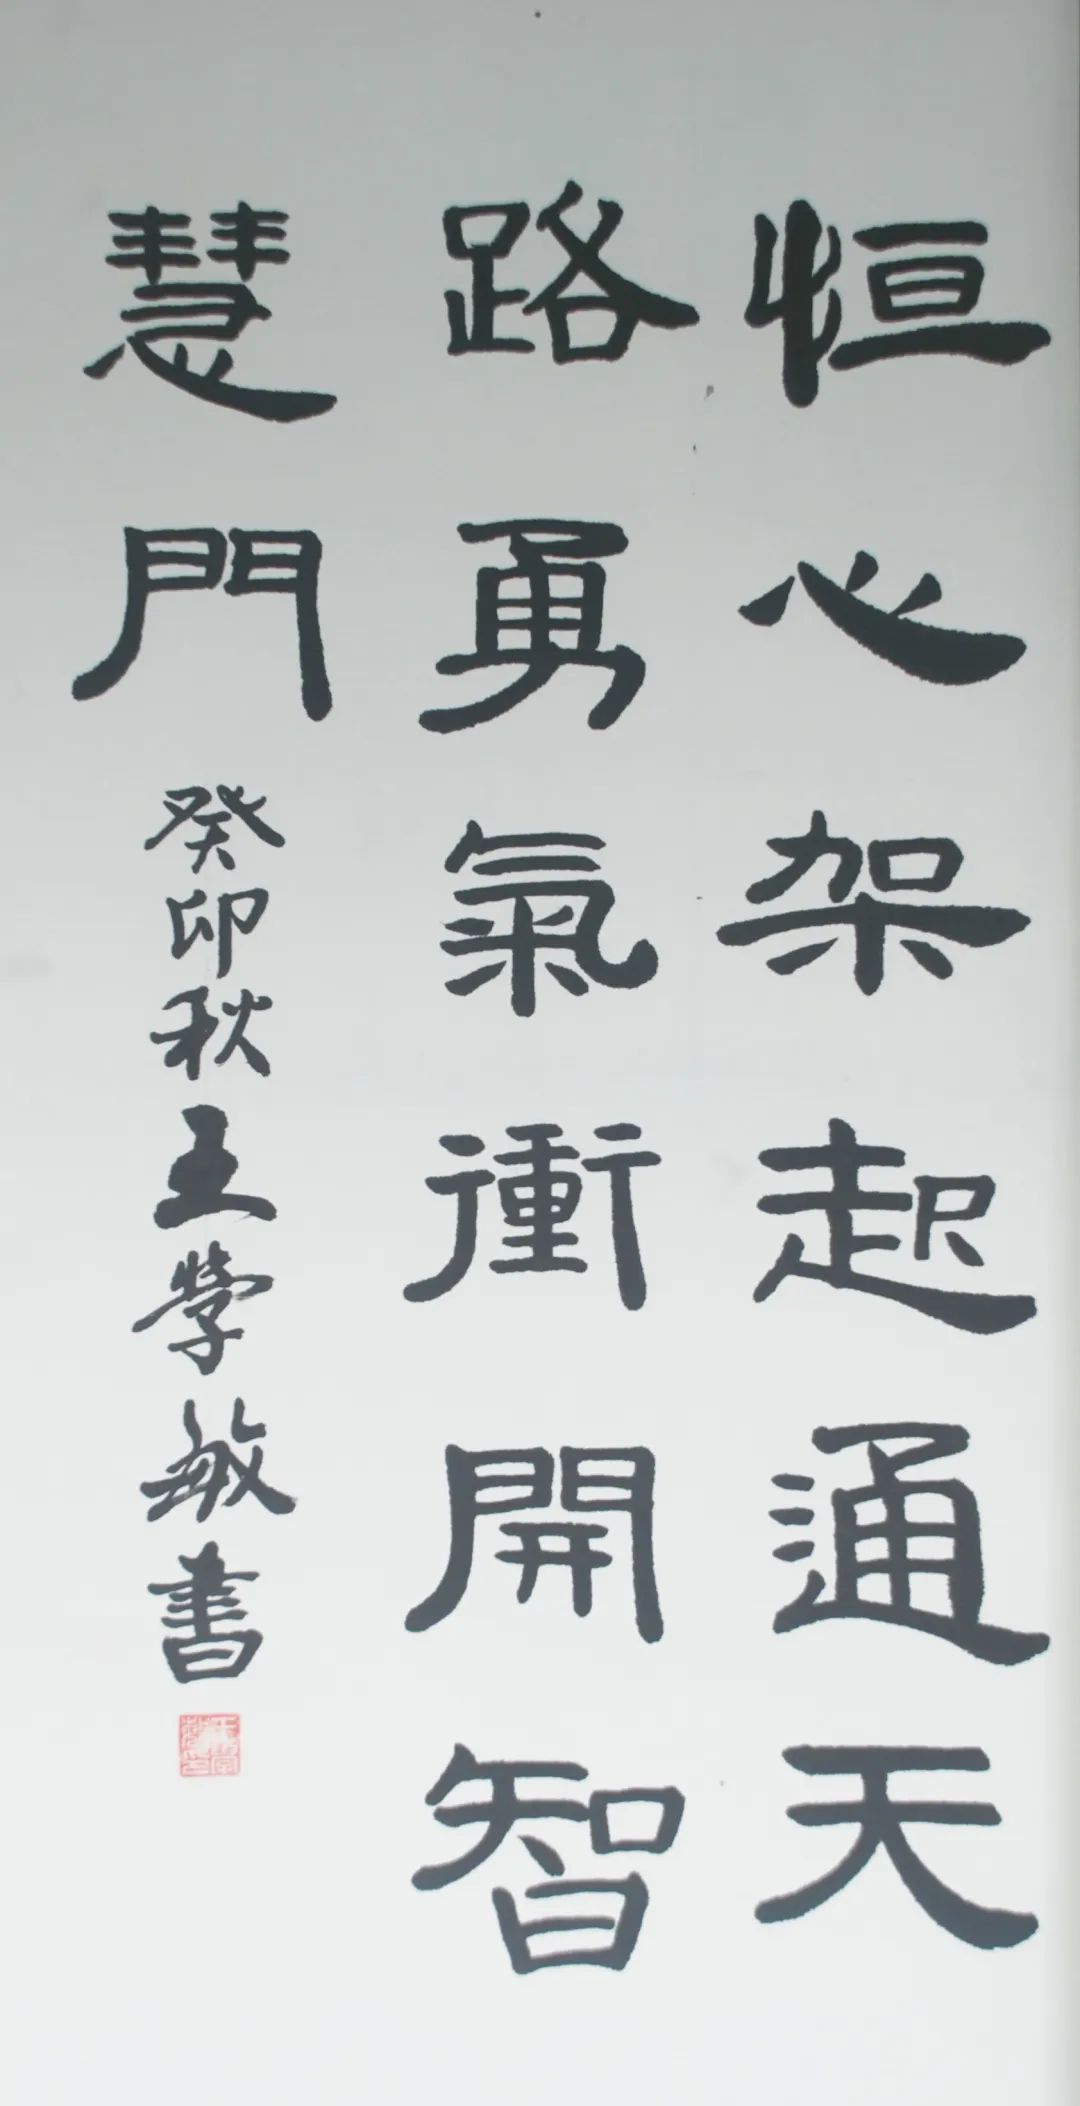 恒心架起通天
路勇氣衝開智
慧門
癸卯秋王學敏書